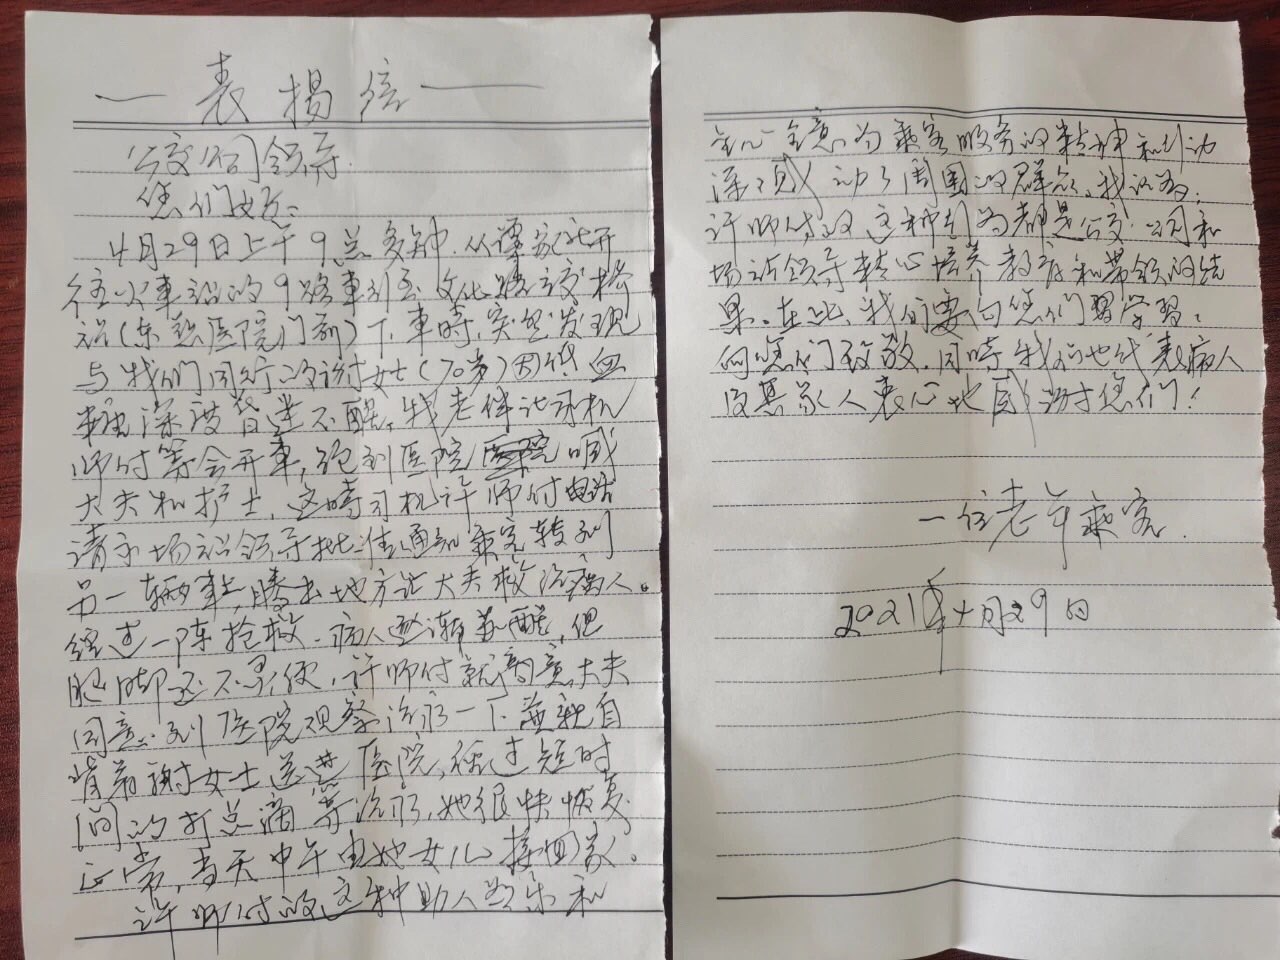 表扬信
公交公司领导.
您们好:
4月29日上午9点多钟.从谭家北开
往火车站的9路车到至文化路该桥
站(东照医院门前)下車時,突然发现
与我们同行的谢女士(70岁)因供血
深度昏迷不醒,我老伴让司机
师付等会开車,跑到医院喊
大夫和护士,这時司机许师付电话
请示场站领导批准通知乘客转到
另一辆车,腾出地方让大夫救治病人。
经过一阵抢救.病人逐渐苏醒,但
腿脚还不灵便,许师付就大夫
同意到医院观察治疗一下并親自
背着謝女士送进医院,经过短时
间的打点滴等治疗,她很快恢复
正常,当天中午由她女儿接回家。
许师付的这种助人为乐和
全心全意为乘客服务的精神和行动
深深感动了周围的群众,我认为:
许师付的这种行为都是公交公司和
场站领导精心培养教育和带领的结
果。在此,我们要向您们学習:
向您们致敬.同時我们也代表病人
及其家人衷心地感谢您们!
一位老年乘客.
2021年4月29日